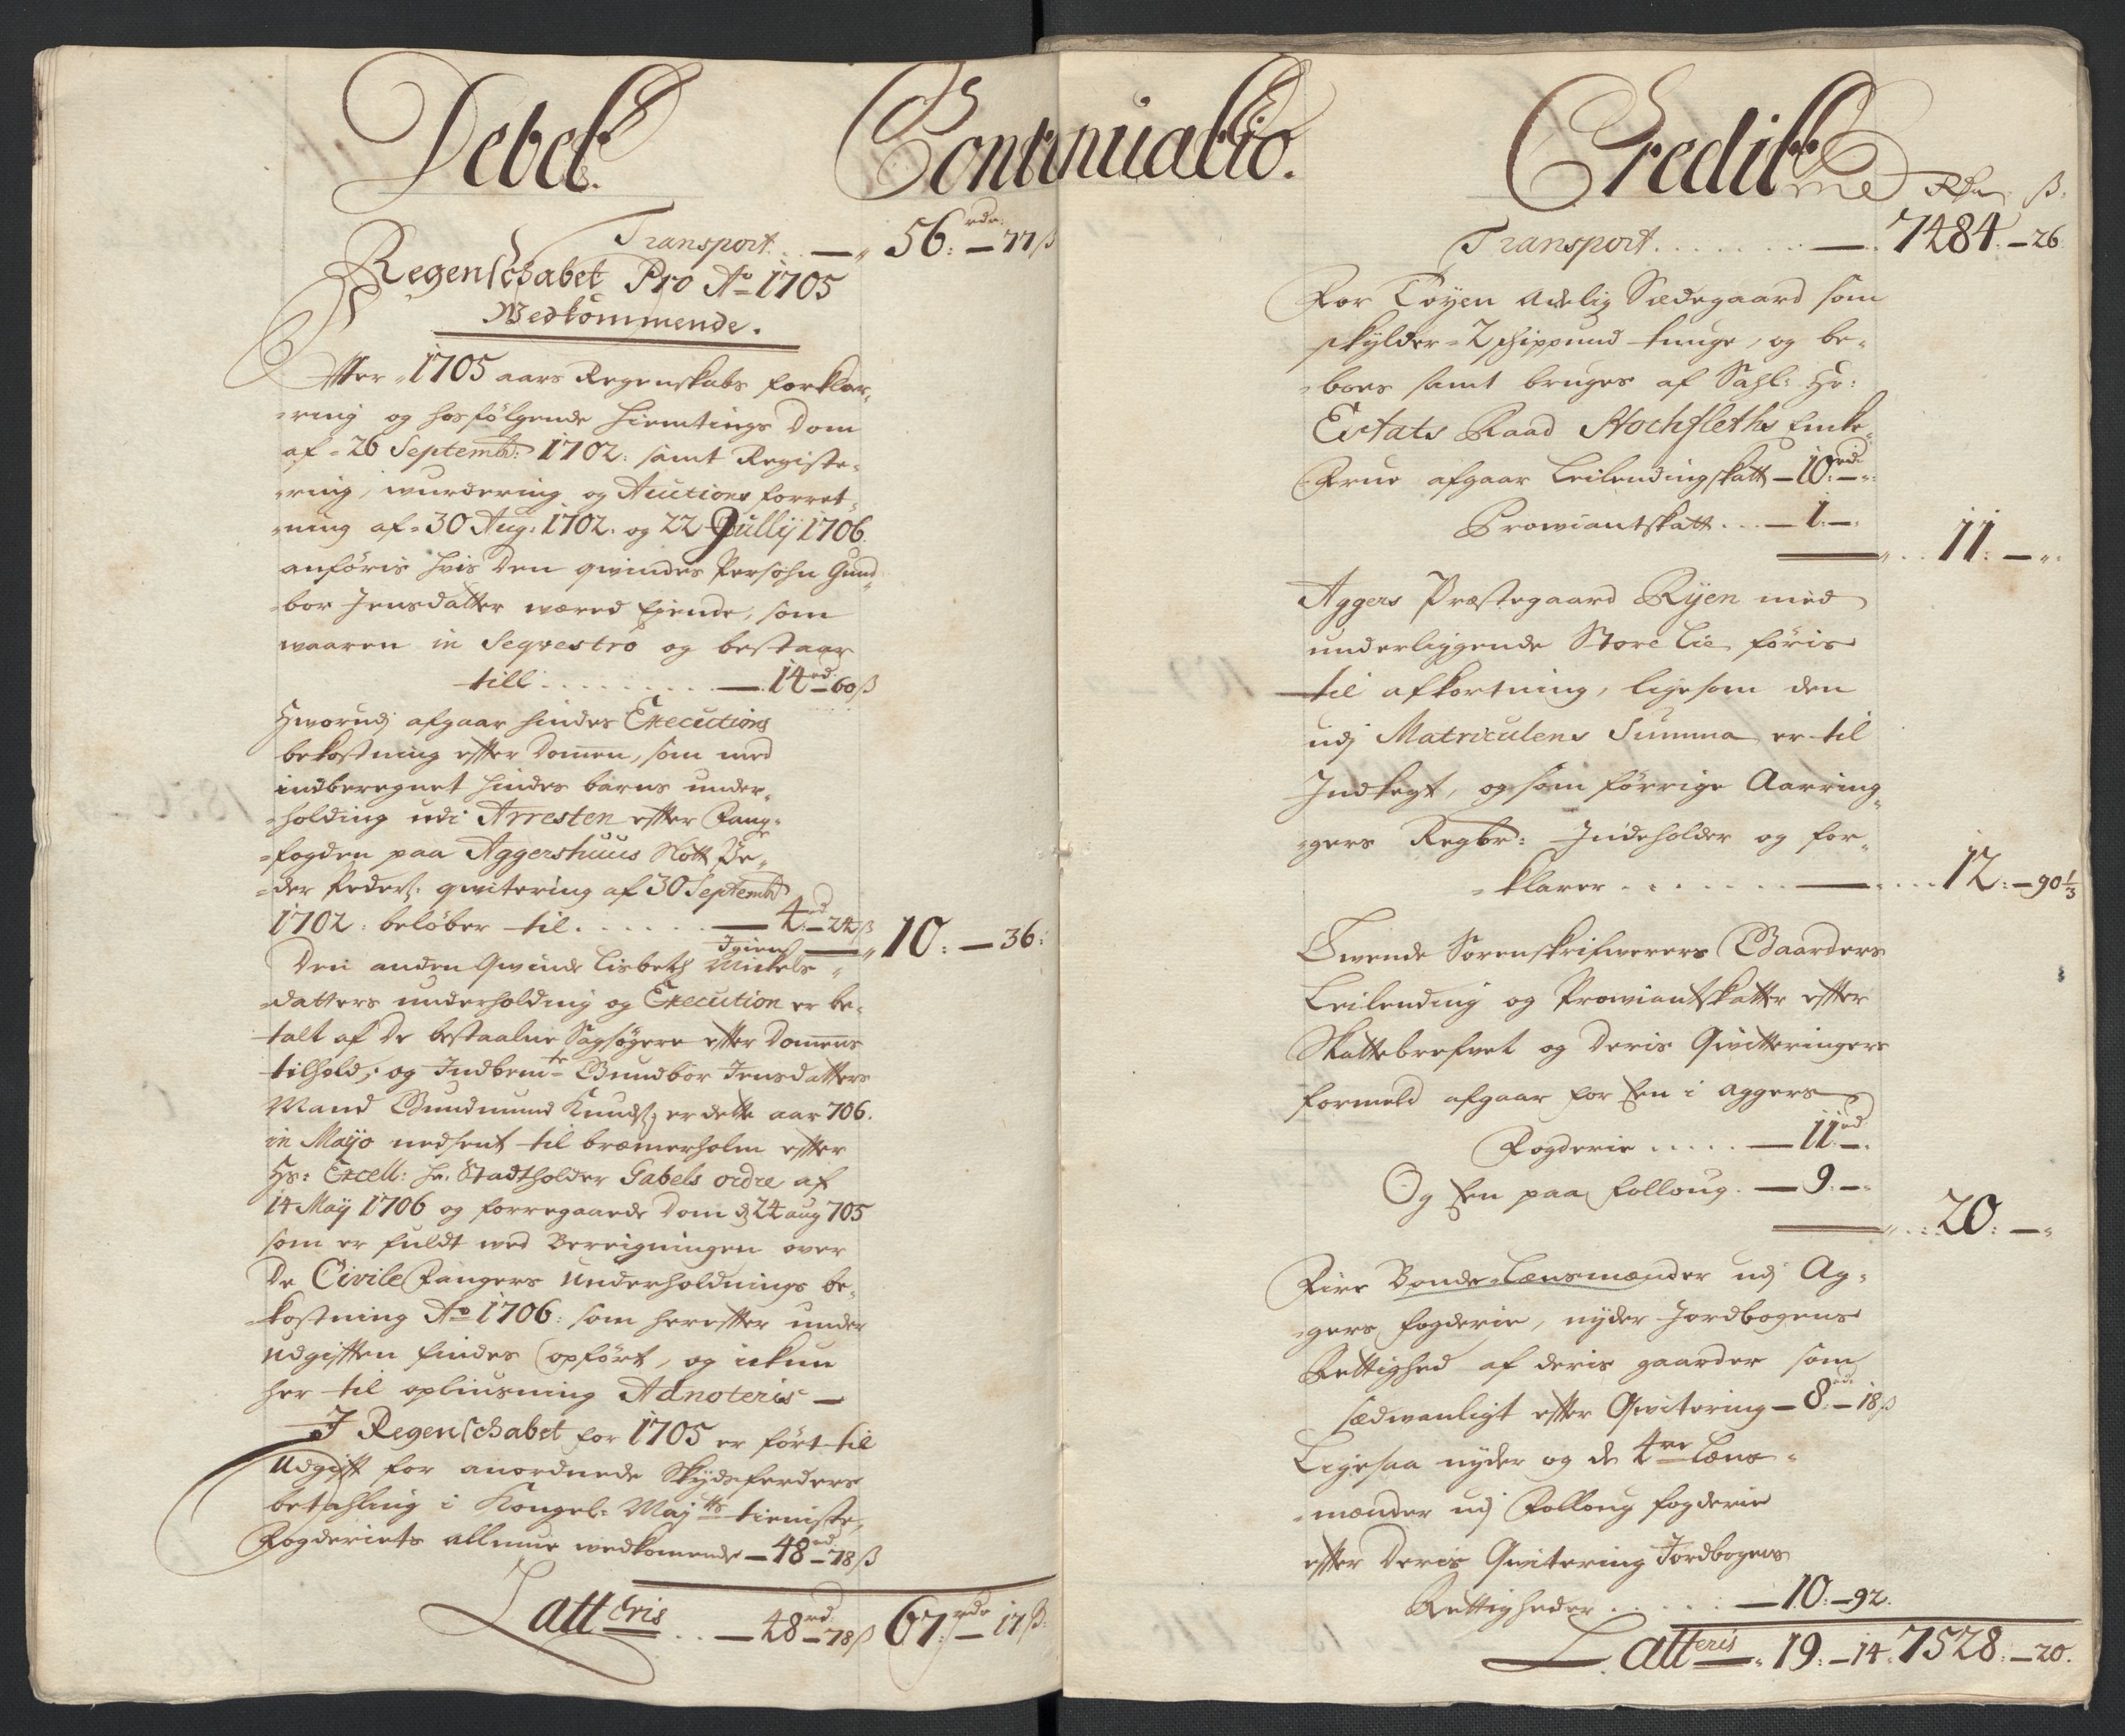 Debet.
Continuatio.
Transport. . — „ 56: rdr: — 77 ß
Regenschabet Pro Ao 1705
Wedkommende.
Effter „ 1705 aars Regenskabs forklar„
„ring og hosfölgende hiemtings Dom
af „ 26 Septembr: 1702: samt Registe„
„ring, wurdering og Auctions forret„
„ning af „ 30 Aug: 1702. og 22 Jullÿ 1706.
anföris hvis den qvindes Persohn Gund„
„bor Jensdatter wæred Eiende, som
waaren in Seqvestro og bestaar
till . . . . . . . . — 14 rd — 60 ß
Hworudj afgaar hindes Executions
bekostning effter Domen, som med
indberegnet hindes barns under„
„holding udi Arresten effter Fang„
„fogden paa Aggershuus Slott Pe„
„der Peders: qwitering af 30 Septembr
1702: beløber til . . . . . . — 4 rd — 24 ß
Igien — „ 10: — 36:
Den anden Qwinde Lisbeth Mickels „
„datters underholding og Execution er be„
talt af de bestaalne Sagsøgere effter Domens
tilhold; og Indbemte Gundbor Jensdatters
Mand Gundmund Knuds: er dette aar 706.
in Mayo nedsent til bræmerholm effter
Hs: Excell: Hr. Stadtholder Gabels ordre af
14 Maÿ 1706 og forregaaende Dom d 24 aug 705
som er fuldt wed Bereigningen over
De Civile Fangers Underholdnings be„
„kostning Ao 1706: som hereffter under
Udgifften findes opført, og ickun
her til opliusning Adnoteris —
I Regenschabet for 1705 er ført til
Udgift for anordnede Skydsferders
betahling i Kongel: Maÿts tieniste,
Fogderiets allmue wedkomende — 48 rd — 78 ß
Latteris . . — 48 rd: — 78 ß 67: rdr — 17 ß:
Credit
Rdr ß:
Transport . . . . . . . — . 7484. — 26.
For Töyen Adelig Sædegaard som
skylder „ 2 schippund tunge, og be„
„boes samt bruges af Sahl: Hr:
Estats Raad Hochfleths Enke„
Frue afgaar Leilendingskatt — 10: rd — „
Prowiantskatt . . . — 1: — .
„ . . 11: — „
Aggers Præstegaard Ryen med
underliggende Store Lie föris
til afkortning, ligesom den
udj Matriculens Summa er til
Indlegt, og som förrige Aarring„
„gers Regbr: Indeholder og for„
„klarer . . . . . . . — . . . 12: — 90 1/3
Twende Sorenskrifwerers Gaarders
Leilending og Prowiantskatter effter
Skattebrefwet og deris Qwitteringers
formeld afgaar for Een i Aggers
Fogderie . . . . . — 11: rd — .
Og Een paa Folloug . — 9: — „
„ . . 20: — „
Fire Bonde-Lensmænder udj Ag„
„gers fogderie, nyder Jordbogens
Rettighed af deris gaarder som
sædwanligt effter Qwitering — 8: rd: — 18 ß
Ligesaa nyder og de 4re Lens„
„mænder udj Folloug fogderie
effter deris Qwitering Jordbogens
Rettigheder . . . . . — 10: — 92.
Latteris „ 19: — 14 „ 7528: — 20.